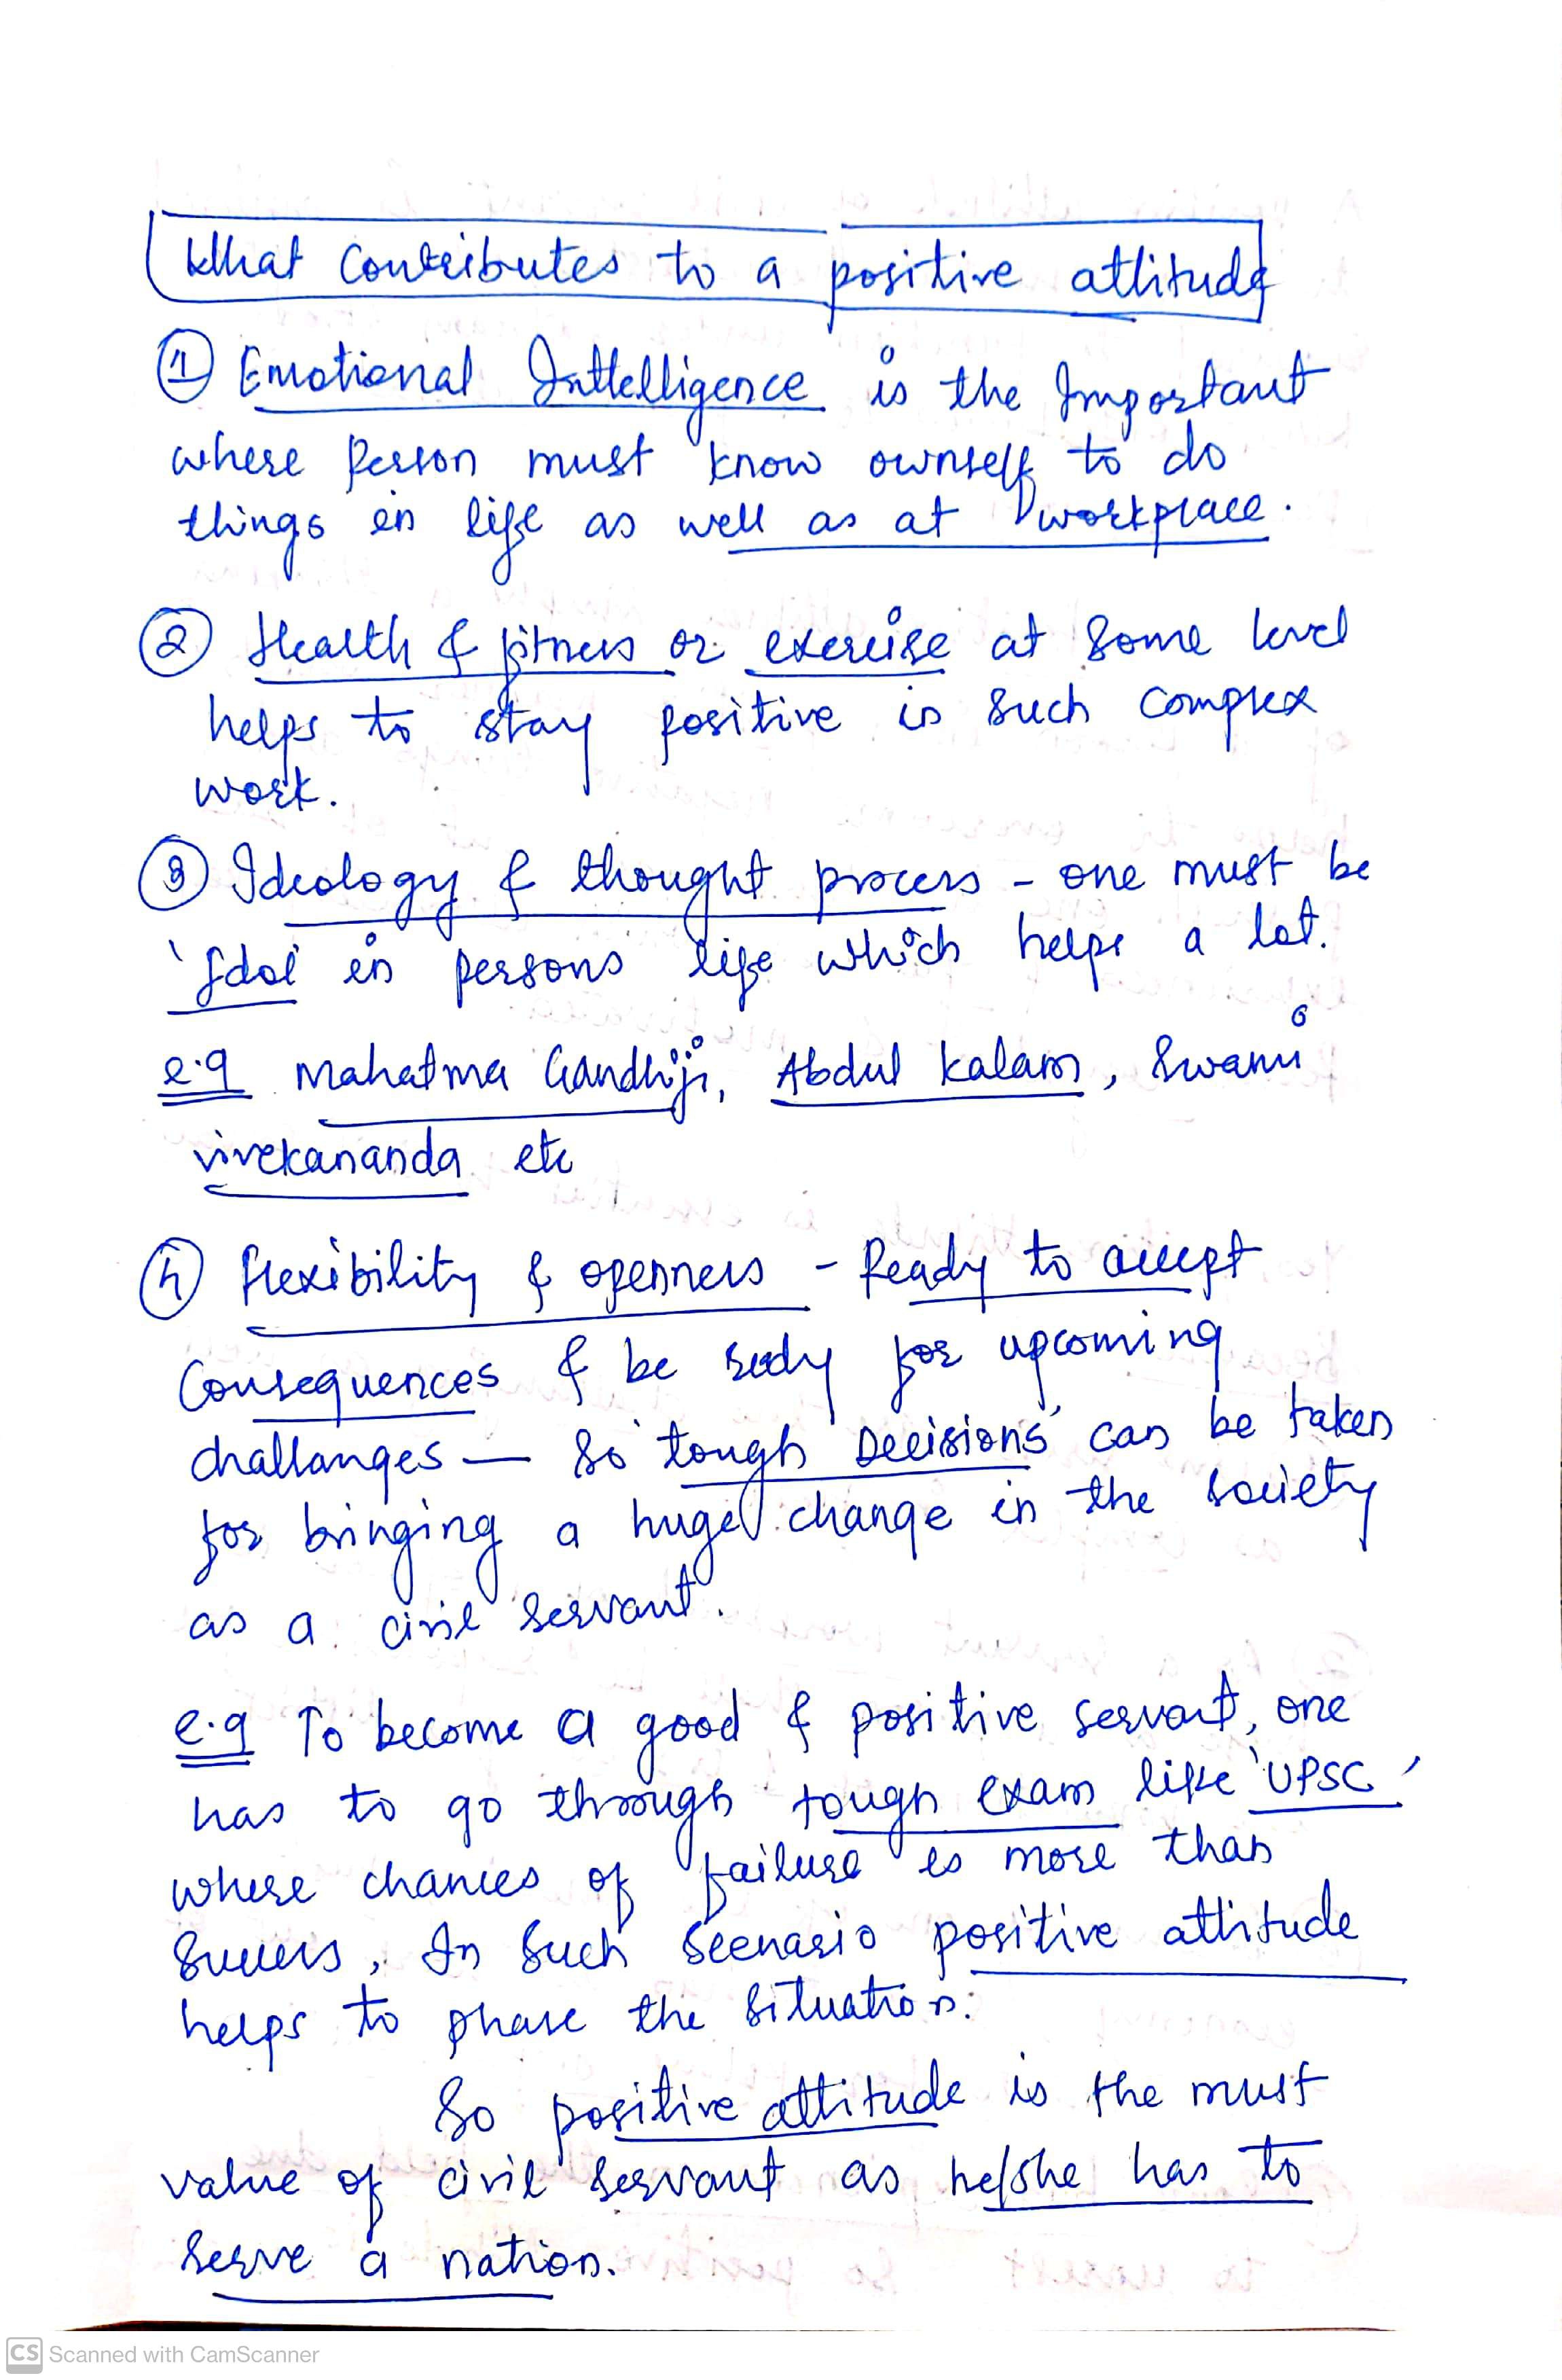 What contributes to a positive attitude
① Emotional Inttelligence is the Important
where Person must know ownself to do
things in life as well as at workplace.
② Health & fitness or exercise at some level
helps to stay positive in such complex
work.
③ Ideology & thought process - one must be
'Idol' in persons life which helps a lot.
e.g Mahatma Gandhiji, Abdul Kalam, Swami
vivekananda etc
④ flexibility & openness - Ready to accept
Consequences & be redy for upcoming
challanges — So 'tough Decisions' can be taken
for bringing a huge change in the society
as a civil servant.
e.g To become a good & positive servant, one
has to go through tough exam like 'UPSC'
where chances of failure is more than
success, In such scenario positive attitude
helps to phase the situation.
So positive attitude is the must
value of civil servant as he/she has to
serve a nation.
CS Scanned with CamScanner